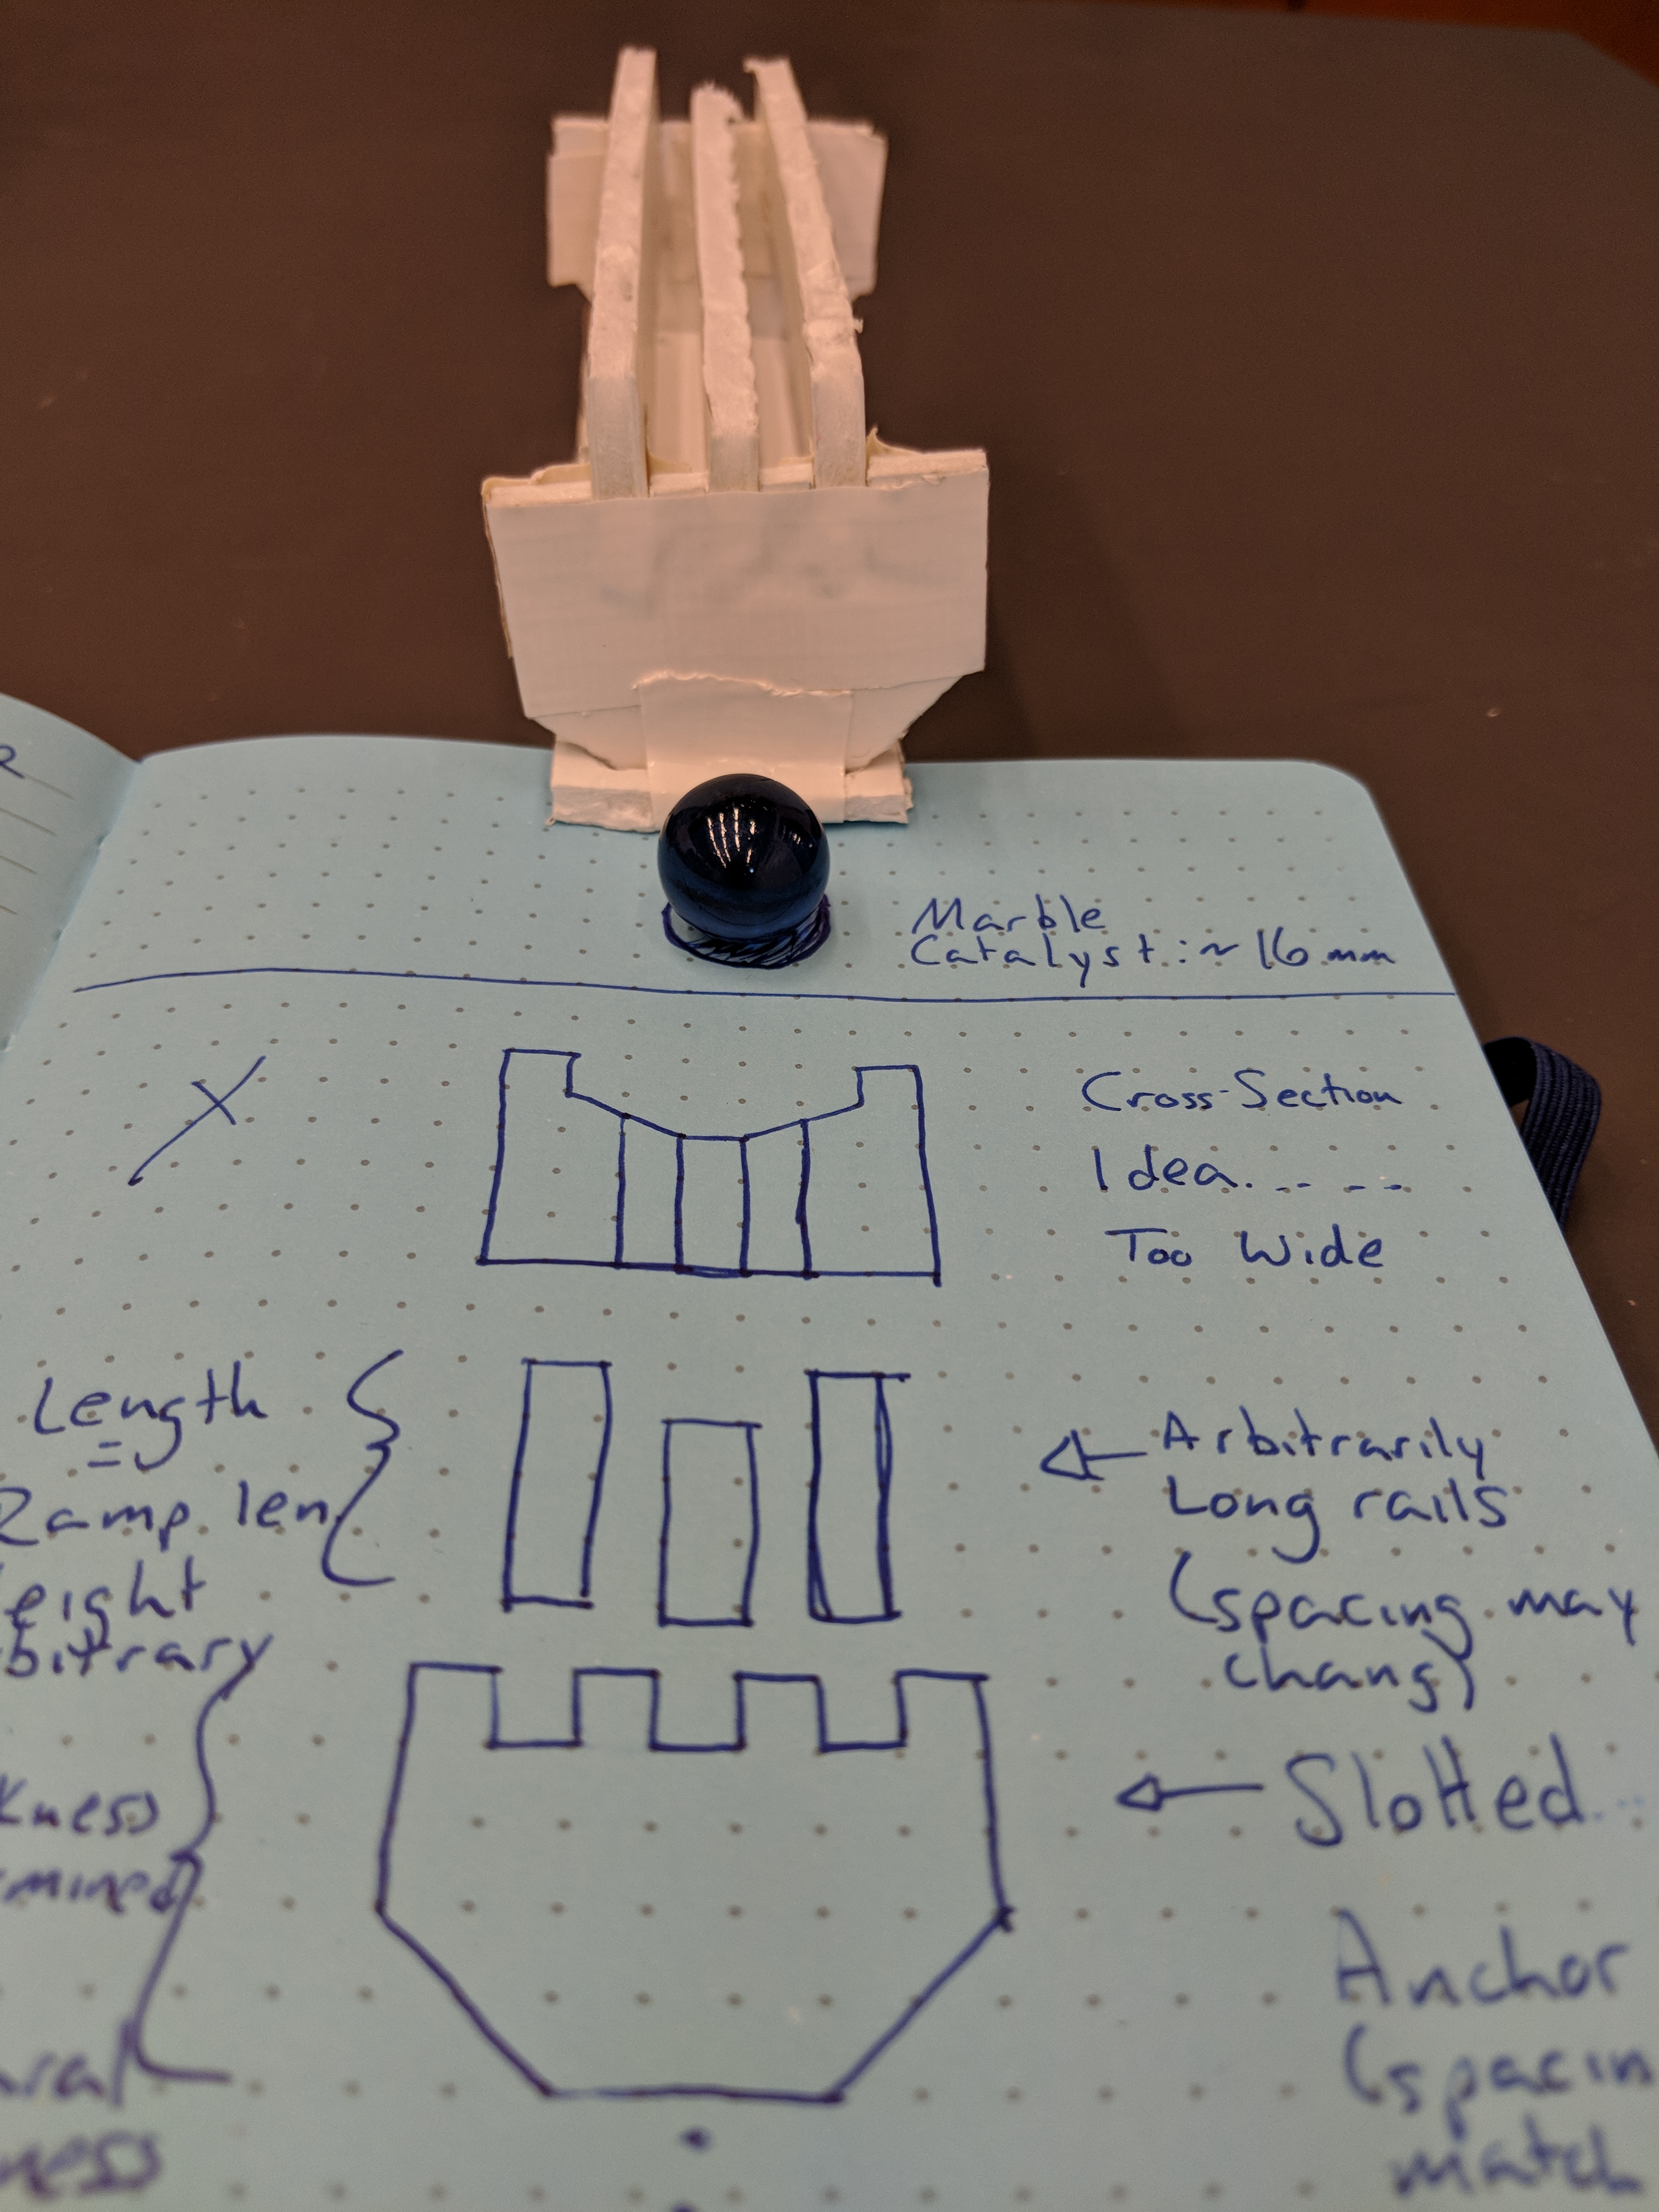 Marble
Catalyst: ~ 16 mm
X
Cross-Section
Idea.....
Too Wide
Length
=
Ramp len
eight
bitrary
Arbitrarily
Long rails
(spacing may
chang)
kness
mined
Slotted...
Anchor
(spacin
match
ral
ness